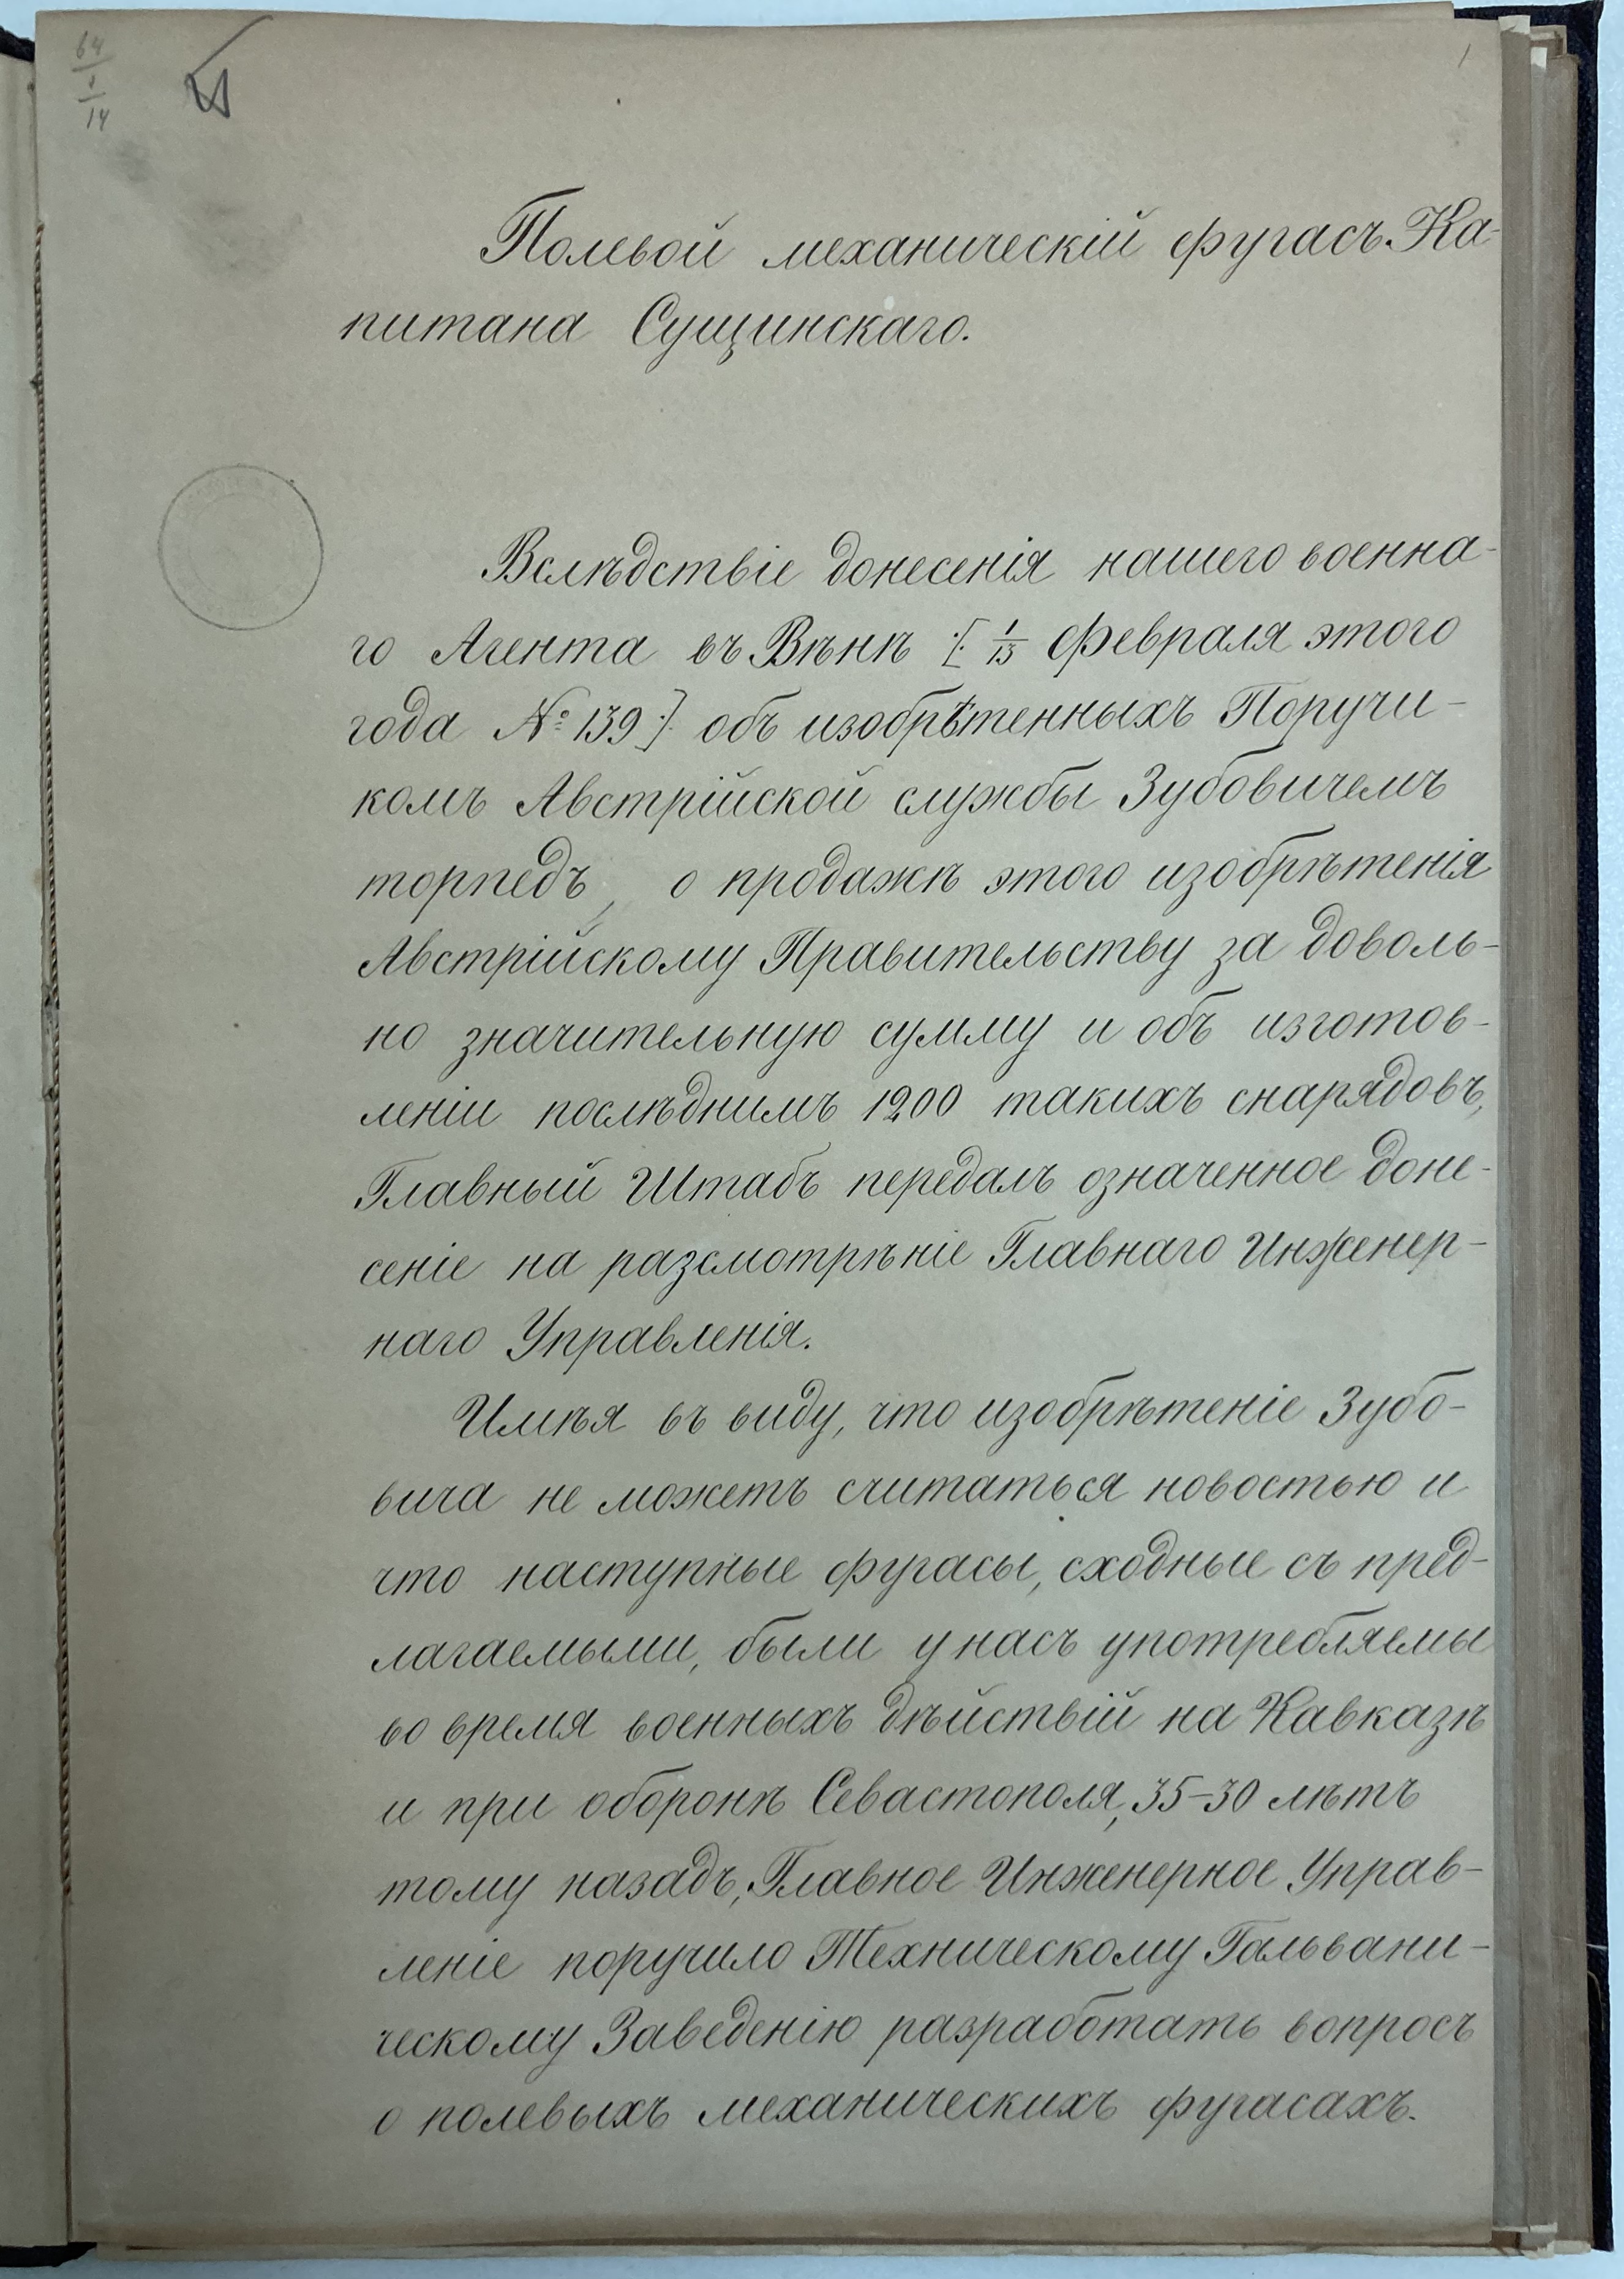 64
1
14
1
Полевой механическій фугасъ Ка-
питана Сущинскаго.
Вслѣдствіе донесенія нашего военна-
го Агента въ Вѣнѣ [: 1/13 Февраля этого
года № 139 :] объ изобрѣтенныхъ Поручи-
комъ Австрійской службы Зубовичемъ
торпедъ, о продажѣ этого изобрѣтенія
Австрійскому Правительству за доволь-
но значительную сумму и объ изготов-
леніи послѣднимъ 1200 такихъ снарядовъ,
Главный Штабъ передалъ означенное доне-
сеніе на разсмотрѣніе Главнаго Инженер-
наго Управленія.
Имѣя въ виду, что изобрѣтеніе Зубо-
вича не можетъ считаться новостью и
что наступные фугасы, сходные съ пред-
лагаемыми, были у насъ употребляемы
во время военныхъ дѣйствій на Кавказѣ
и при оборонѣ Севастополя, 35-30 лѣтъ
тому назадъ, Главное Инженерное Управ-
леніе поручило Техническому Гальвани-
ческому Заведенію разработать вопросъ
о полевыхъ механическихъ фугасахъ.